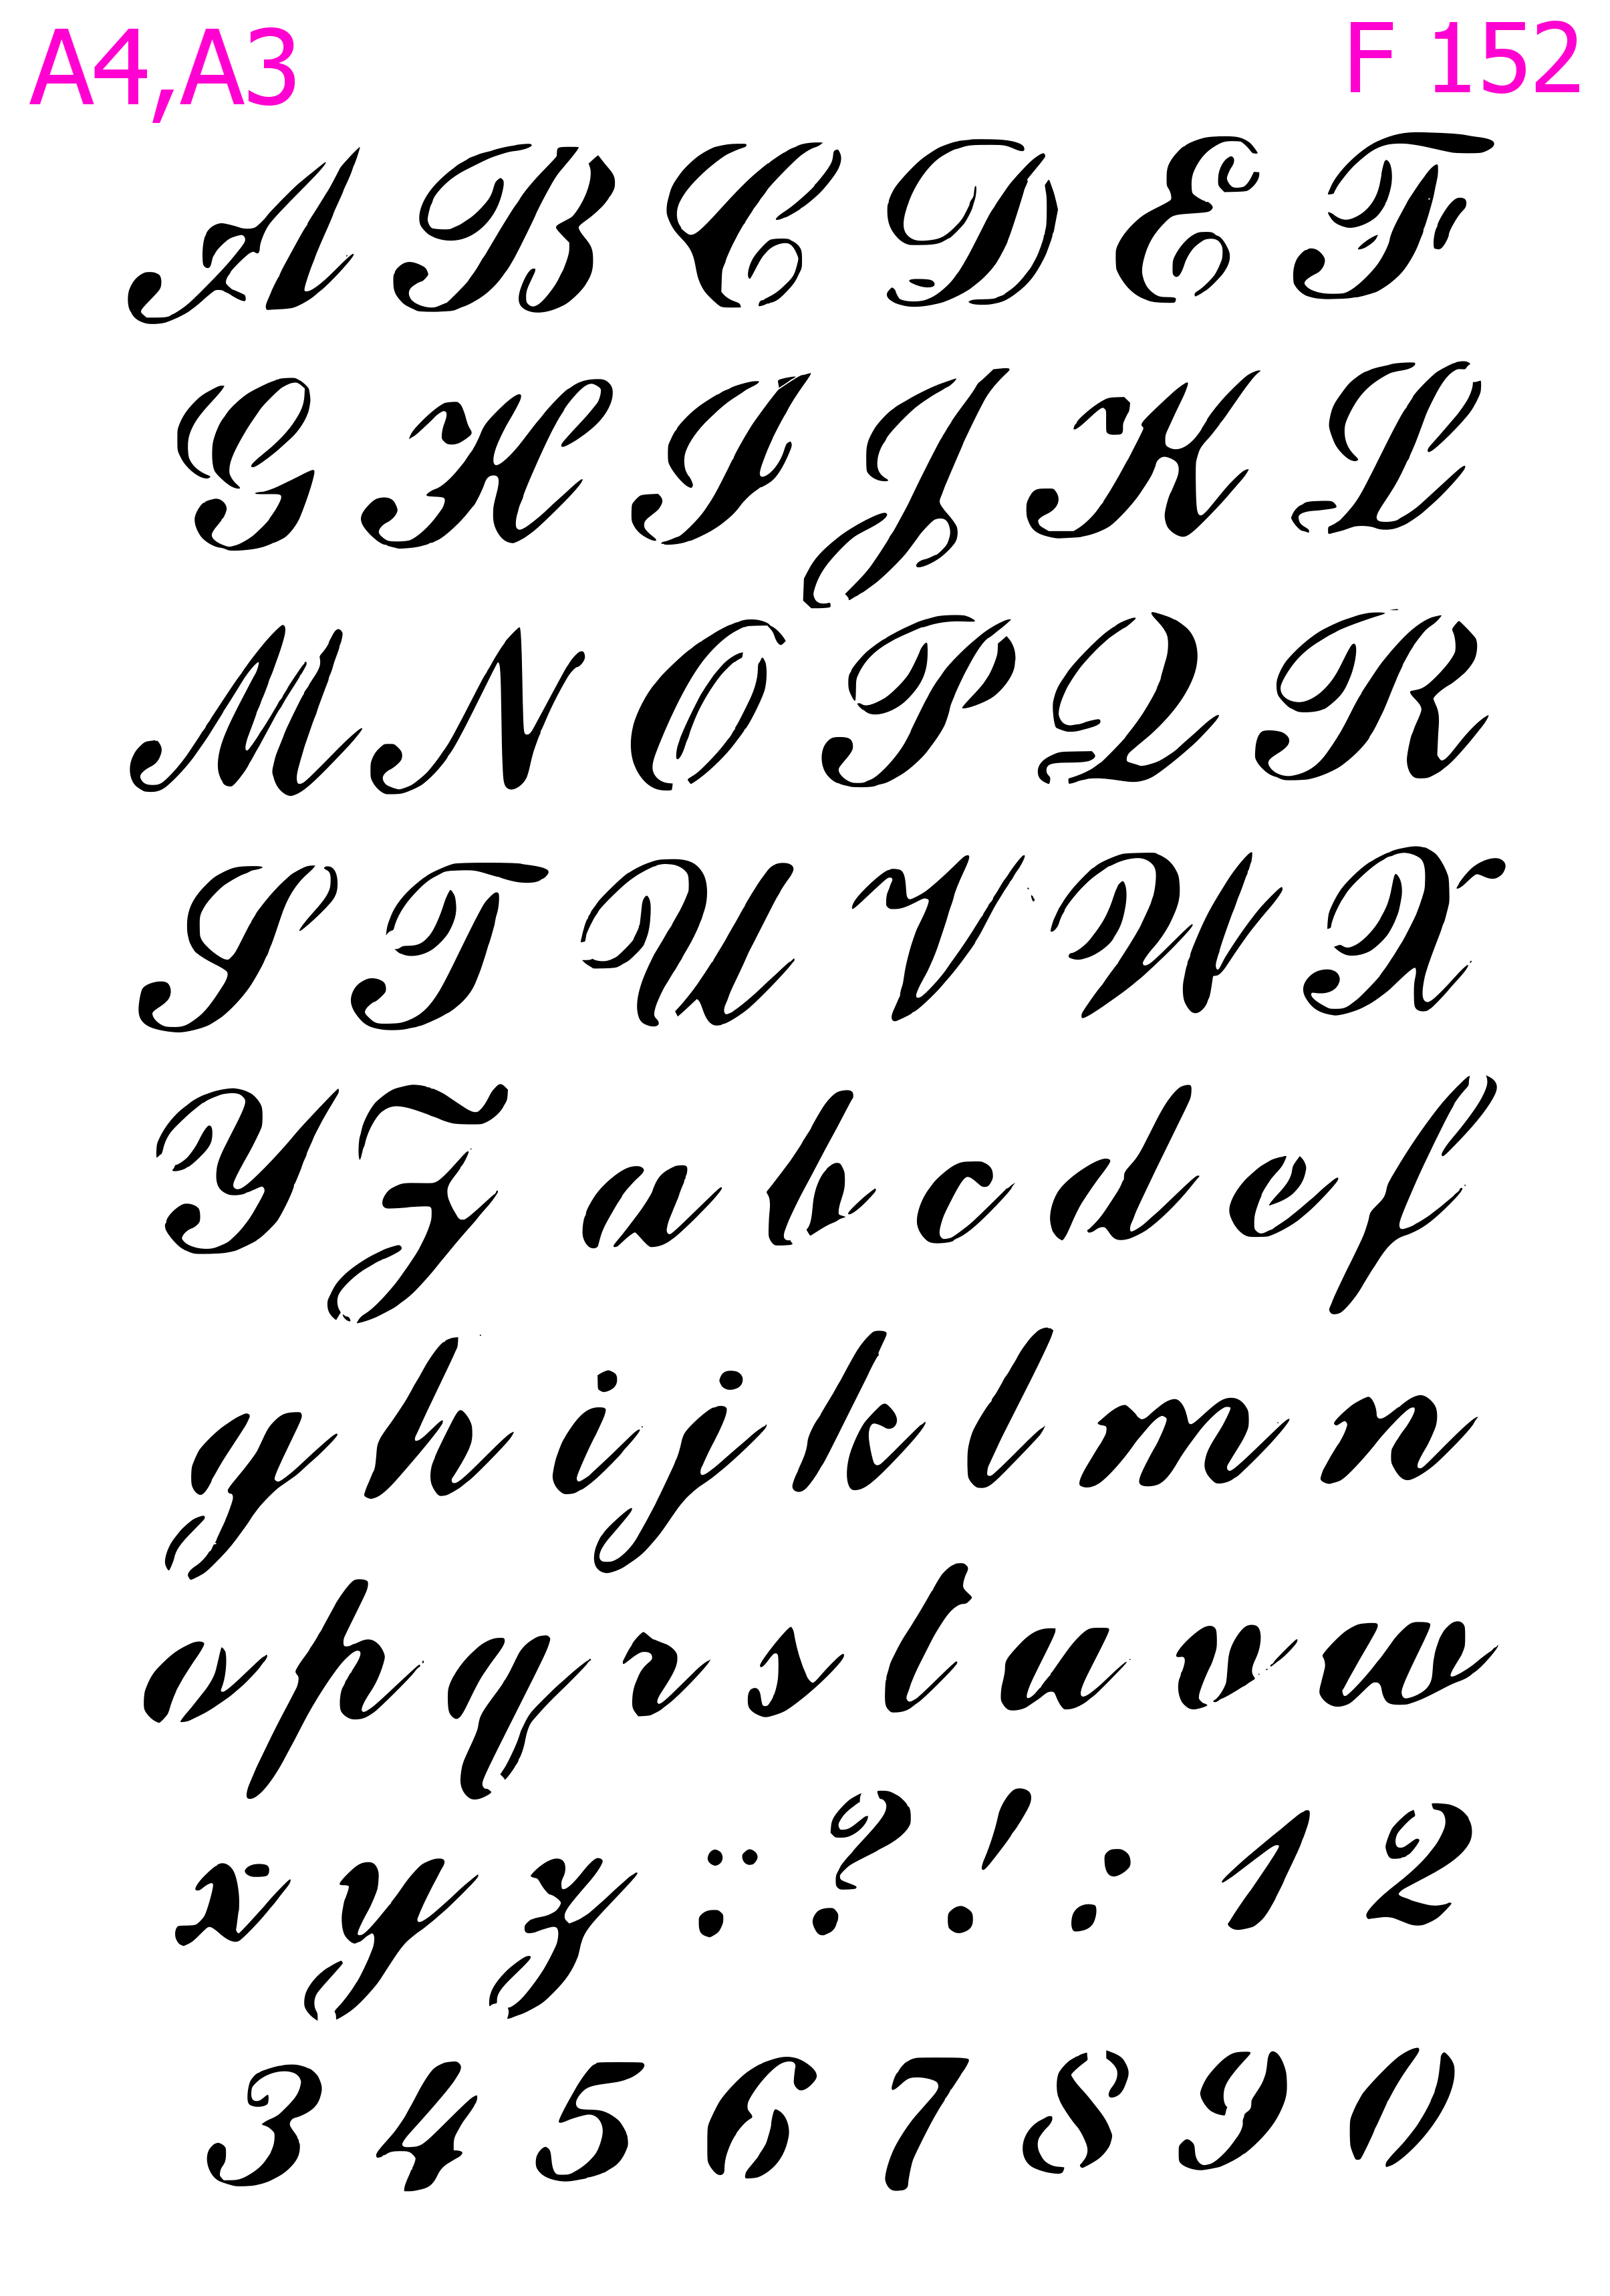 A4,A3 F 152
A B C D E F
G H I J K L
M N O P Q R
S T U V W X
Y Z a b c d e f
g h i j k l m n
o p q r s t u v w
x y z : ¨ ? ! ; 1 2
3 4 5 6 7 8 9 0